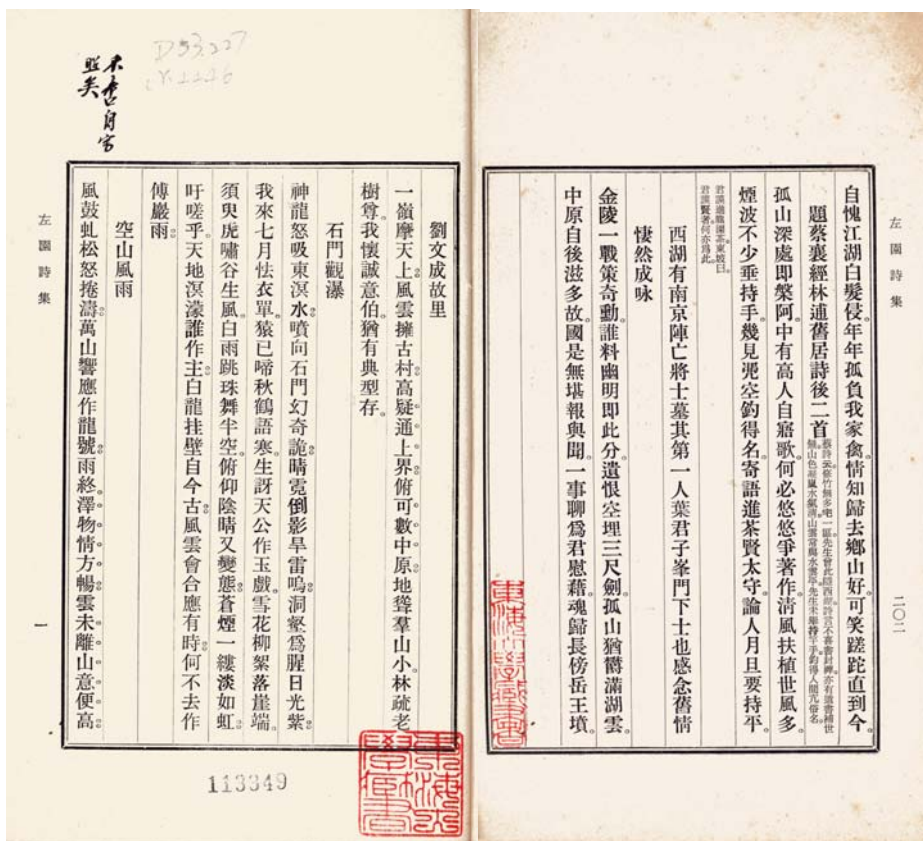 左園詩集
二〇二
自愧江湖白髮侵年年孤負我家禽。情知歸去鄉山好。可笑蹉跎直到今。
題蔡襄經林逋舊居詩後二首
孤山深處即槃阿。中有高人自寤歌。何必悠悠爭著作。清風扶植世風多。
煙波不少垂持手。幾見兕空鈎得名。寄語進茶賢太守。論人月旦要持平。
君謨進龍團茶。東坡曰。
君謨賢者。何亦爲此。
西湖有南京陣亡將士墓其第一人葉君子峯門下士也感念舊情
悽然成咏
金陵一戰策奇動。誰料幽明即此分。遺恨空埋三尺劍。孤山猶鬱滿湖雲。
中原自後滋多故。國是無堪報與聞。一事聊爲君慰藉。魂歸長傍岳王墳。
東海大學藏書
劉文成故里
一嶺摩天上。風雲擁古村。高疑通上界。俯可數中原。地聳羣山小。林疏老
樹尊。我懷誠意伯。猶有典型存。
石門觀瀑
神龍怒吸東溟水。噴向石門幻奇詭。晴霓倒影旱雷鳴。洞壑爲腥日光紫。
我來七月怯衣單。猿已啼秋鶴語寒。生訝天公作玉戲。雪花柳絮落崖端。
須臾虎嘯谷生風。白雨跳珠舞半空。俯仰陰晴又變態。蒼煙一縷淡如虹。
吁嗟乎。天地溟濛誰作主。白龍挂壁自今古。風雲會合應有時。何不去作
傅巖雨。
空山風雨
風鼓虬松怒捲濤。萬山響應作龍號。雨終澤物情方暢。雲未離山意便高。
左園詩集
一
東海大學藏書
113349